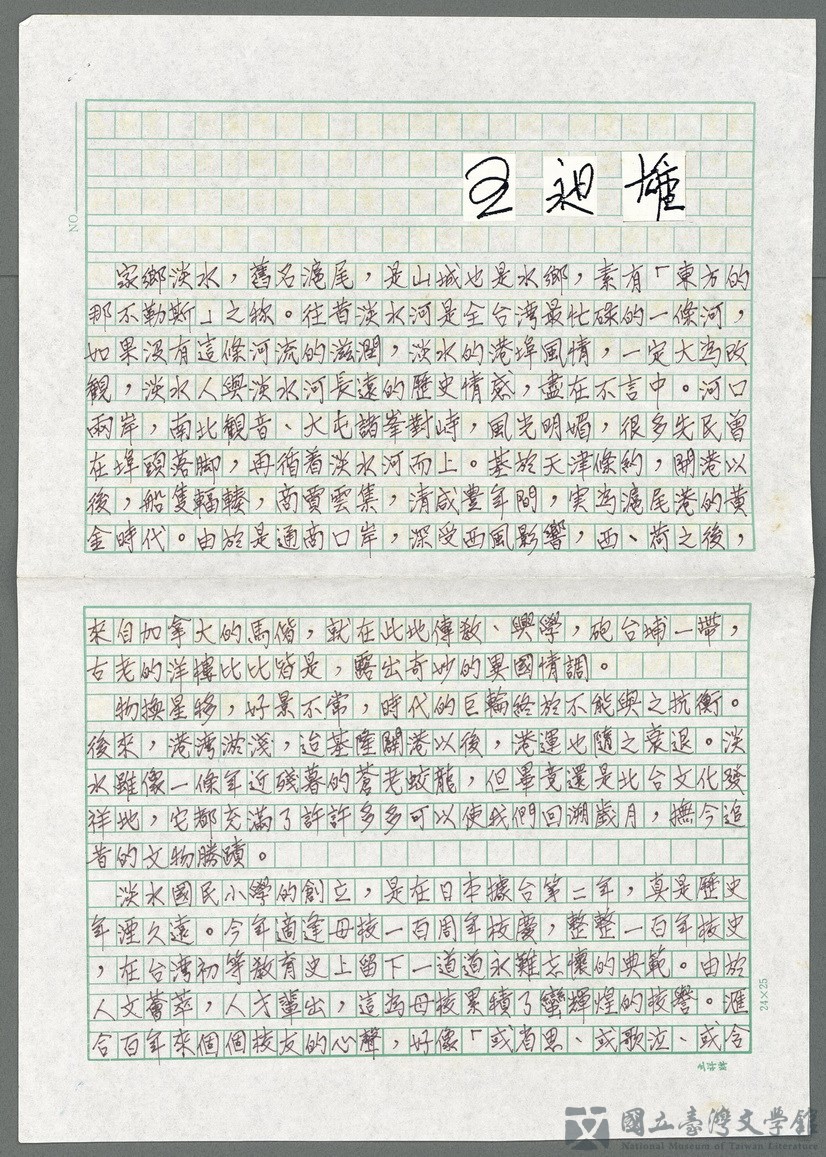 王昶雄
NO.
家鄉淡水，舊名滬尾，是山城也是水鄉，素有「東方的
那不勒斯」之称。往昔淡水河是全台湾最忙碌的一條河，
如果没有這條河流的滋潤，淡水的港埠風情，一定大為改
観，淡水人與淡水河長遠的歷史情感，盡在不言中。河口
兩岸，南北観音、大屯諸峯對峙，風光明媚，很多先民曾
在埠頭落脚，再循着淡水河而上。基於天津條約，開港以
後，船隻輻輳，商賈雲集，清咸豐年間，実為滬尾港的黄
金時代。由於是通商口岸，深受西風影響，西、荷之後，
來自加拿大的馬偕，就在此地傳教、興學，砲台埔一帶，
古老的洋樓比比皆是，露出奇妙的異國情調。
物換星移，好景不常，時代的巨輪終於不能與之抗衡。
後來，港湾淤淺，迨基隆開港以後，港運也隨之衰退。淡
水雖像一條年近殘暮的蒼老蛟龍，但畢竟還是北台文化發
祥地，它都充滿了許許多多可以使我們回溯歲月，撫今追
昔的文物勝蹟。
淡水國民小學的創立，是在日本據台第二年，真是歷史
年湮久遠。今年適逢母校一百周年校慶，整整一百年校史
，在台湾初等教育史上留下一道道永難忘懷的典範。由於
人文薈萃，人才輩出，這為母校累積了蠻輝煌的校譽。滙
合百年來個個校友的心聲，好像「或省思、或歌泣、或含
24×25
國立臺灣文學館
National Museum of Taiwan Literature